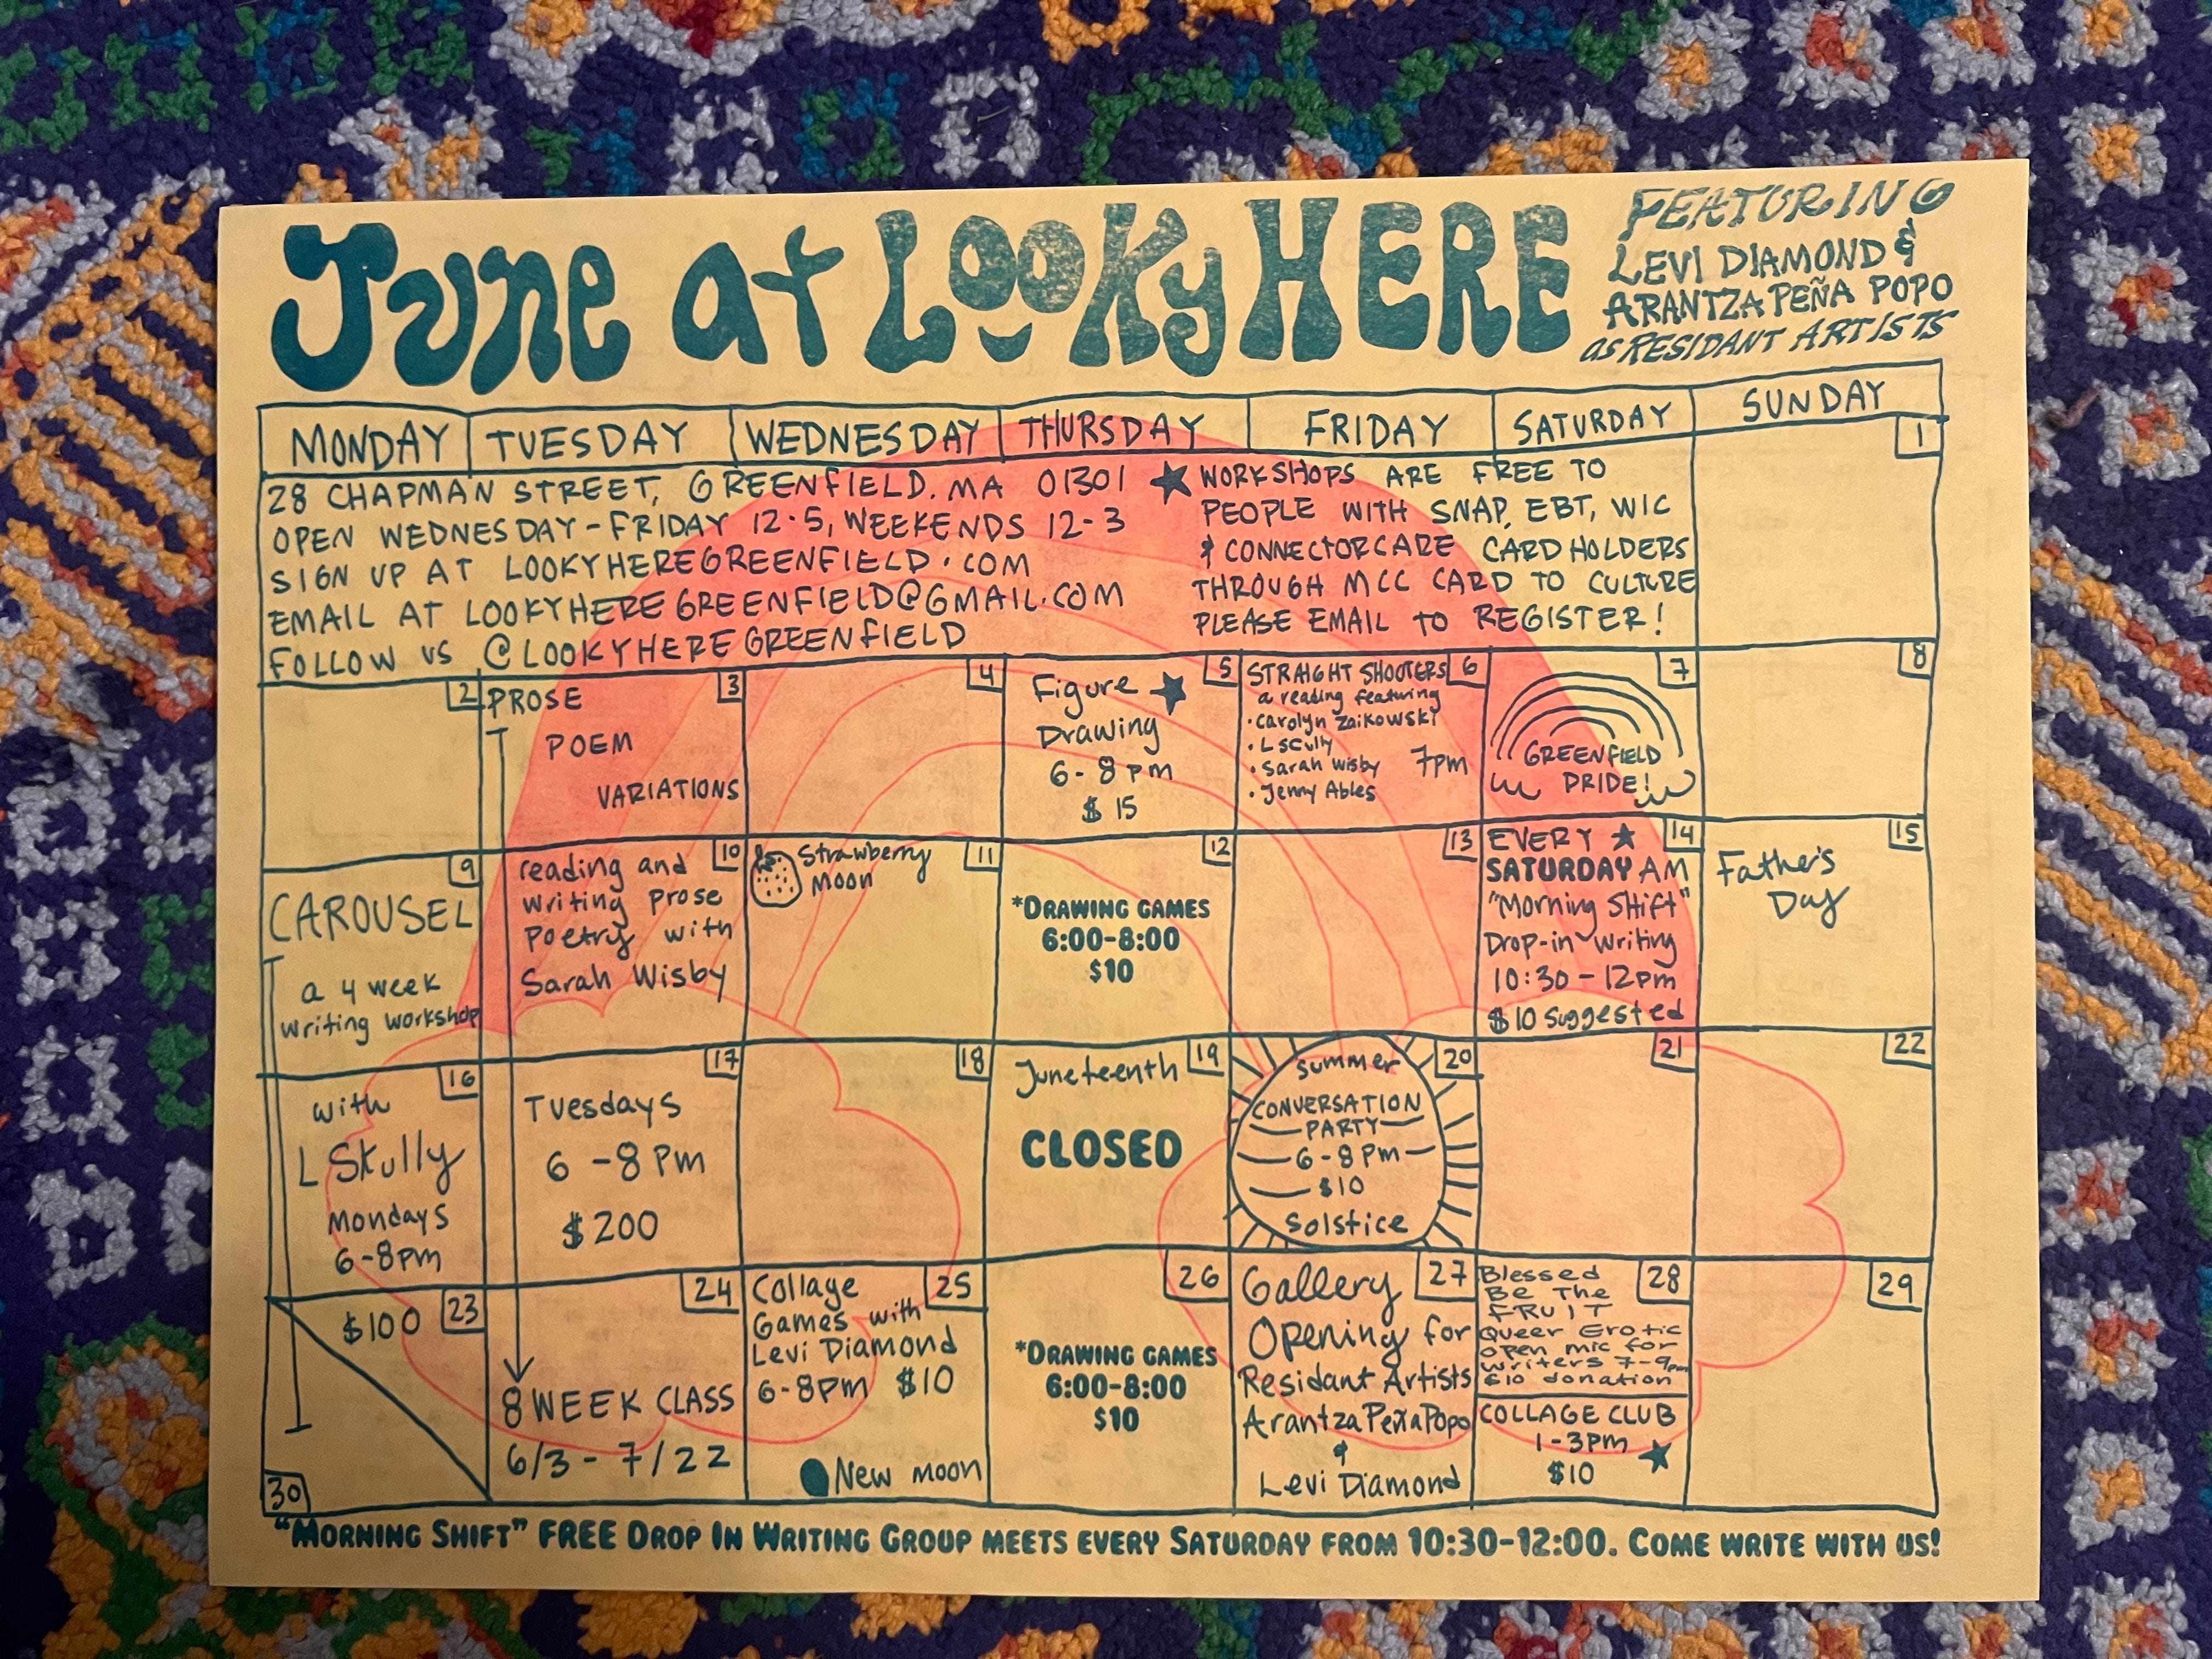 June at LOOKY HERE
FEATURING
LEVI DIAMOND &
ARANTZA PEÑA POPO
as RESIDANT ARTISTS
MONDAY TUESDAY WEDNESDAY THURSDAY FRIDAY SATURDAY SUNDAY
28 CHAPMAN STREET, GREENFIELD, MA 01301
OPEN WEDNESDAY-FRIDAY 12-5, WEEKENDS 12-3
SIGN UP AT LOOKYHEREGREENFIELD.COM
EMAIL AT LOOKYHEREGREENFIELD@GMAIL.COM
FOLLOW US @LOOKYHEREGREENFIELD
★ WORKSHOPS ARE FREE TO
PEOPLE WITH SNAP, EBT, WIC
& CONNECTORCARE CARD HOLDERS
THROUGH MCC CARD TO CULTURE
PLEASE EMAIL TO REGISTER!
1
2
3
PROSE
POEM
VARIATIONS
4
5
Figure ★
Drawing
6-8pm
$15
6
STRAIGHT SHOOTERS
a reading featuring
• Carolyn Zaikowski
• L Scully
• Sarah Wisby
• Jenny Ables
7pm
7
GREENFIELD
PRIDE!
8
9
CAROUSEL
a 4 week
writing workshop
10
reading and
writing prose
poetry with
Sarah Wisby
11
Strawberry
Moon
12
*DRAWING GAMES
6:00-8:00
$10
13
14
EVERY ★
SATURDAY AM
"Morning Shift"
Drop-in writing
10:30-12pm
$10 suggested
15
Father's
Day
16
with
L Skully
Mondays
6-8pm
17
Tuesdays
6-8pm
$200
18
19
Juneteenth
CLOSED
20
Summer
CONVERSATION
PARTY
6-8pm
$10
Solstice
21
22
23
$100
30
24
8 WEEK CLASS
6/3 - 7/22
25
Collage
Games with
Levi Diamond
6-8pm $10
New moon
26
*DRAWING GAMES
6:00-8:00
$10
27
Gallery
Opening for
Residant Artists
Arantza Peña Popo
&
Levi Diamond
28
Blessed
Be The
FRUIT
Queer Erotic
open mic for
writers 7-9pm
$10 donation
COLLAGE CLUB
1-3pm ★
$10
29
"MORNING SHIFT" FREE DROP IN WRITING GROUP MEETS EVERY SATURDAY FROM 10:30-12:00. COME WRITE WITH US!